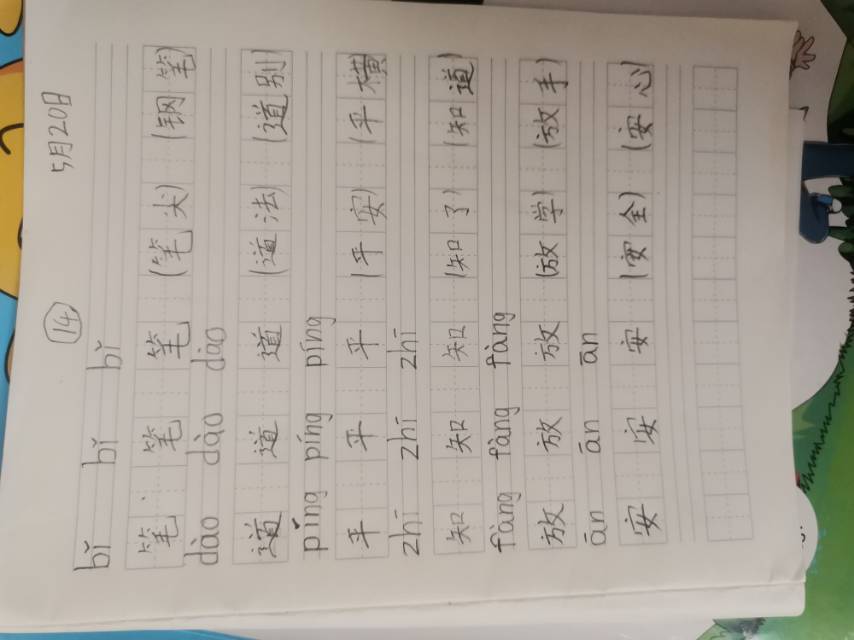 ⑭ 5月20日
bǐ bǐ bǐ
笔 笔 笔 (笔尖) (钢笔)
dào dào dào
道 道 道 (道法) (道别)
píng píng píng
平 平 平 (平安) (平横)
zhī zhī zhī
知 知 知 (知了) (知道)
fàng fàng fàng
放 放 放 (放学) (放手)
ān ān ān
安 安 安 (安全) (安心)